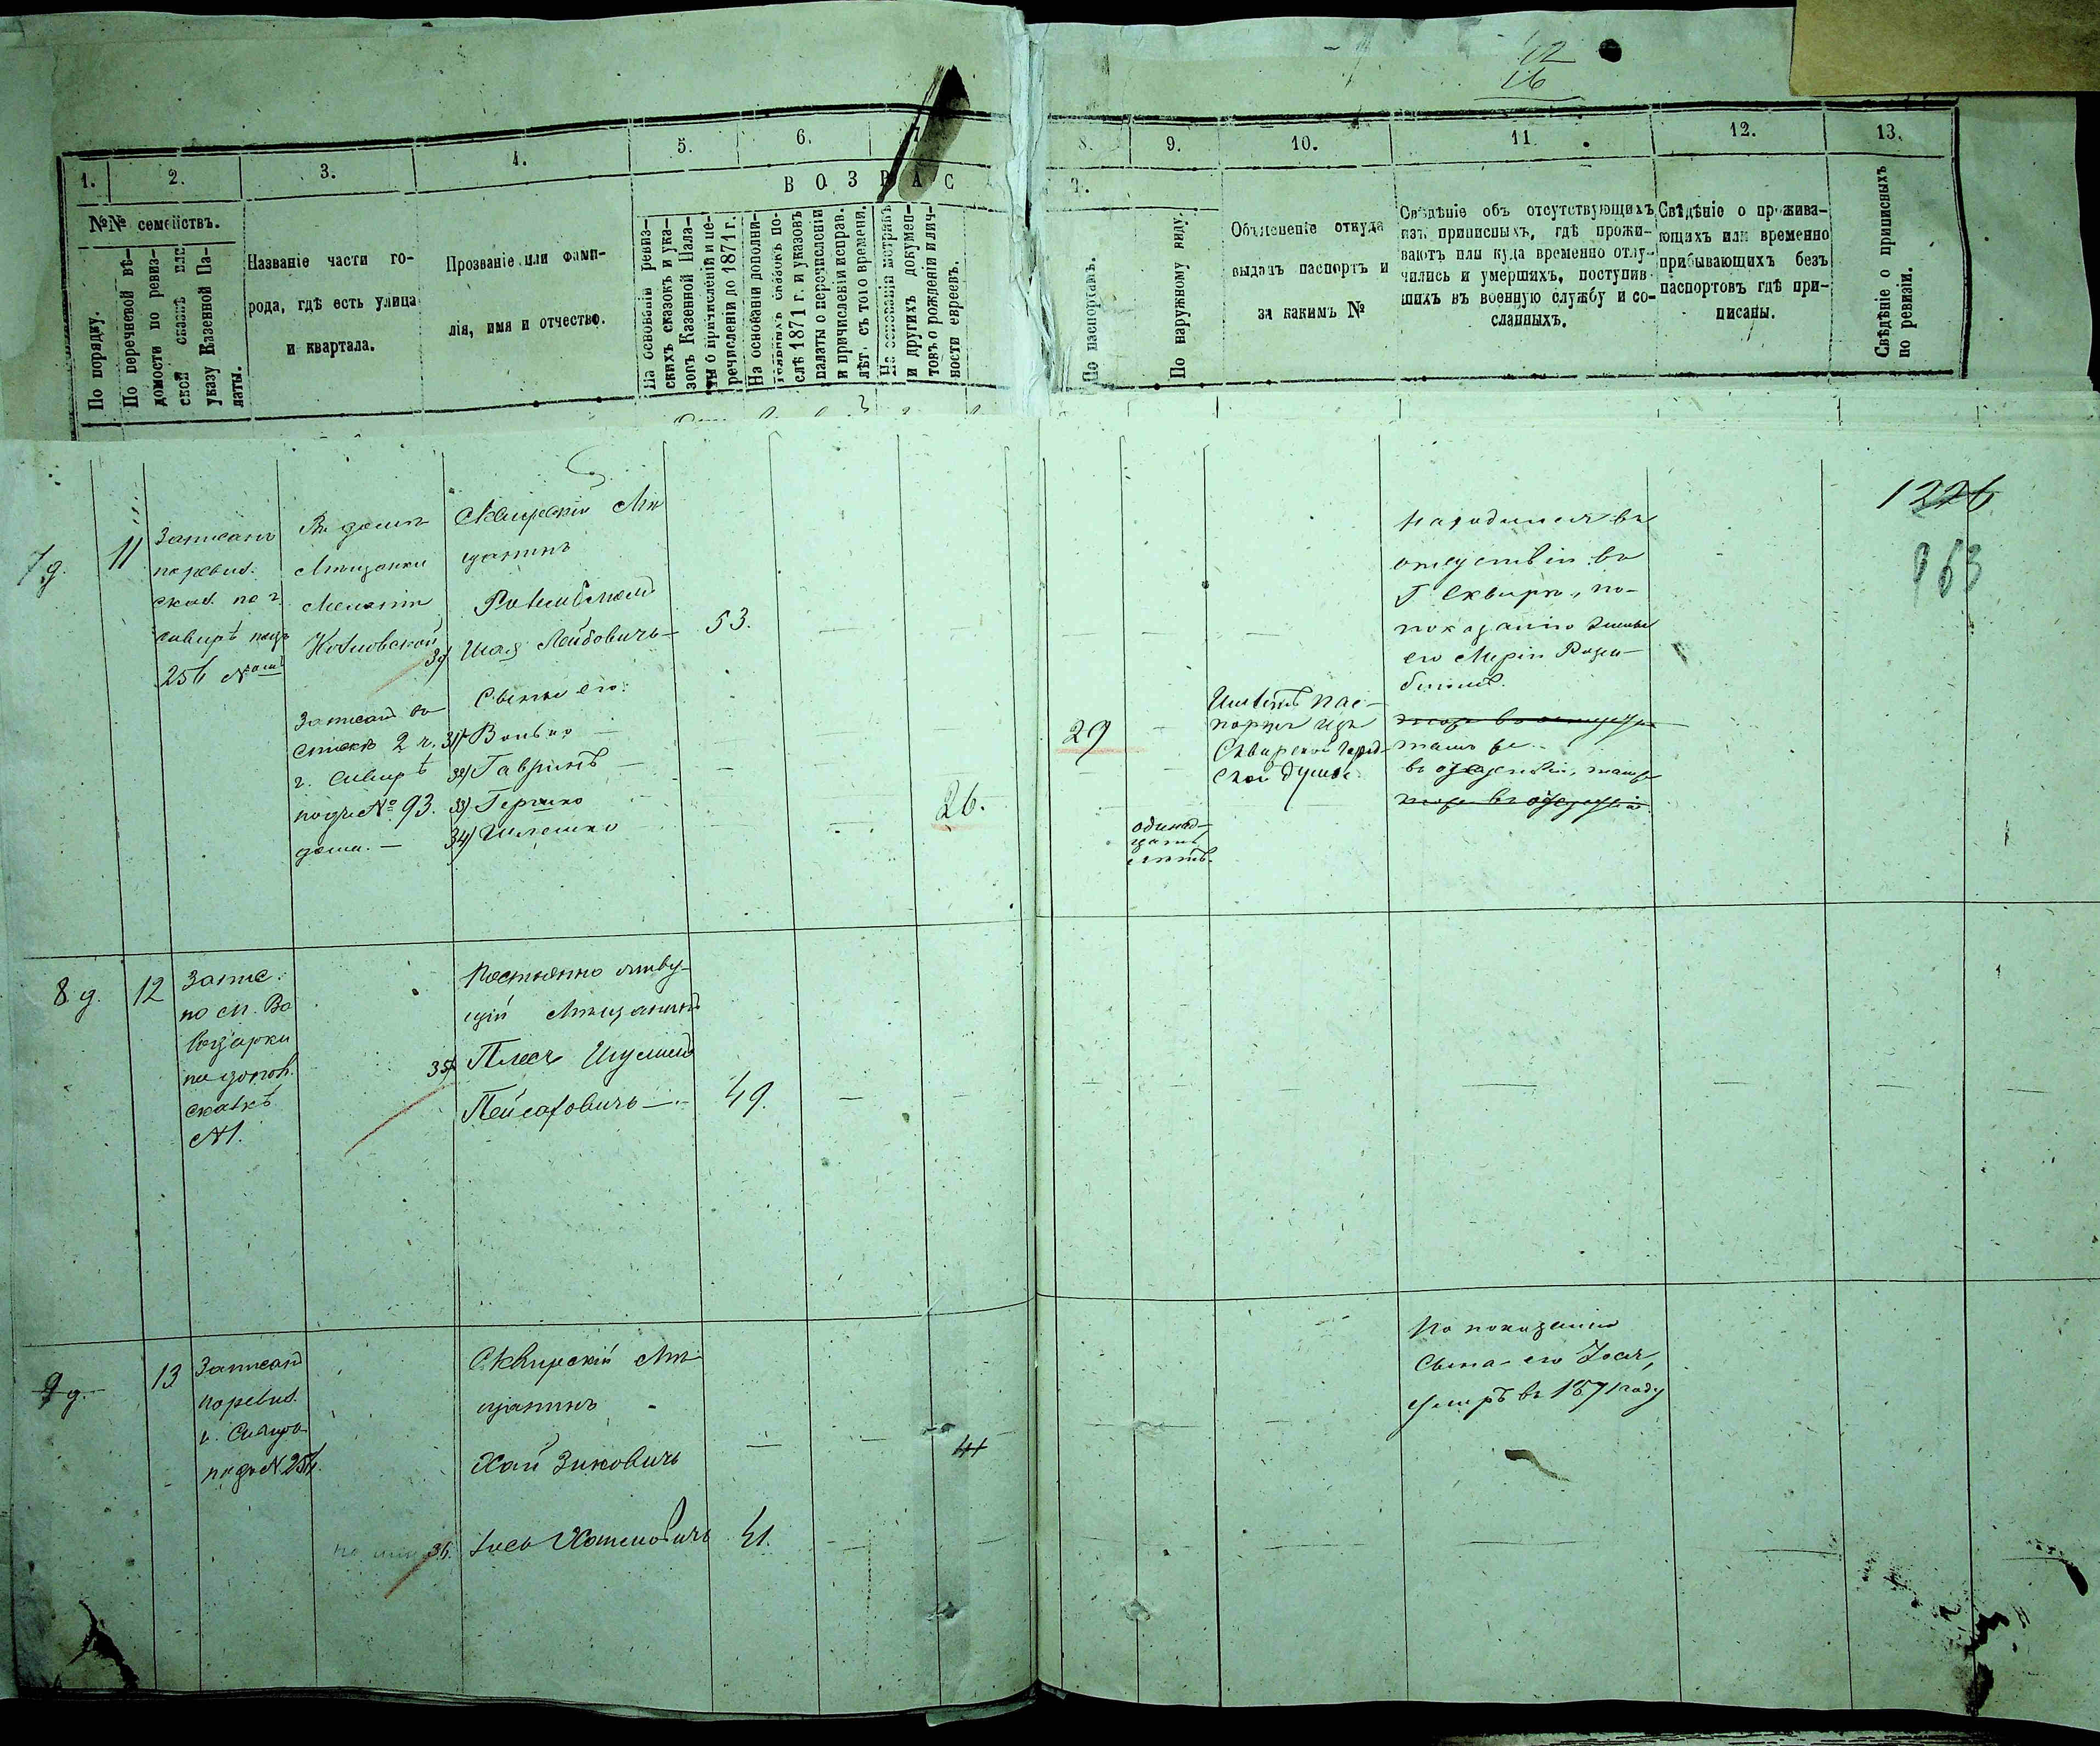 12
16
1.
2.
3.
4.
5.
6.
7
8.
9.
10.
11.
12.
13.
№№ семействъ.
По порядку.
По перечневой вѣ-
домости по ревиз-
ской сказкѣ или
указу Казенной Па-
латы.
Названіе части го-
рода, гдѣ есть улица
и квартала.
Прозваніе или фами-
лія, имя и отчество.
ВОЗРАС
Т.
На основаніи ревиз-
скихъ сказокъ и ука-
зовъ Казенной Пала-
ты о причисленіи и пе-
речисленіи до 1871 г.
На основаніи дополни-
тельныхъ сказокъ по-
слѣ 1871 г. и указовъ
палаты о перечисленіи
и причисленіи исправ.
лѣт. съ того времени.
На основаніи метрикъ
и другихъ докумен-
товъ о рожденіи и лич-
ности евреевъ.
По паспортамъ.
По наружному виду.
Объясненіе откуда
выданъ паспортъ и
за какимъ №
Свѣдѣніе объ отсутствующихъ
изъ приписныхъ, гдѣ прожи-
ваютъ или куда временно отлу-
чились и умершихъ, поступив-
шихъ въ военную службу и со-
сланныхъ.
Свѣдѣніе о прожива-
ющихъ или временно
прибывающихъ безъ
паспортовъ гдѣ при-
писаны.
Свѣдѣніе о приписныхъ
по ревизіи.
7 д.
11
Записанъ
по ревиз.
сказ. по г.
Сквирѣ подъ
254 №омъ
Въ домѣ
Мѣщанки
Котловской
Записанъ въ
спискѣ 2 ч.
г. Сквирѣ
подъ № 93.
дома. —
Сквирскій Мѣ
щанинъ
30) Шая Лейбовичъ — 53.
Сыны его:
31) Волько —
32) Гаврилъ —
33) Гершко
34) Шлемко
26.
29
одинад-
цать
лѣтъ.
Имѣетъ пас-
портъ изъ
Сквирской город-
ской думы.
находится въ
отсутствіи въ
г. Сквирѣ, по-
показанію жены
его Маріи Розен-
блитъ.
тамъ же
въ отсутствіи, тамъ же
1226
963
8 д.
12
Запис.
по м. Во
лодарки
по допол.
сказкѣ
№1.
Постоянно живу-
щій Мѣщанинъ
35) Плесъ Шулимъ
Пейсаховичъ — 49.
9 д.
13
Записанъ
по ревиз.
г. Сквира
подъ № 254.
Сквирскій Мѣ
щанинъ
Хаи Зиковичъ
41
36. Іось Хаимовичъ 41.
По показанію
Сына его Іося,
умеръ въ 1871 году